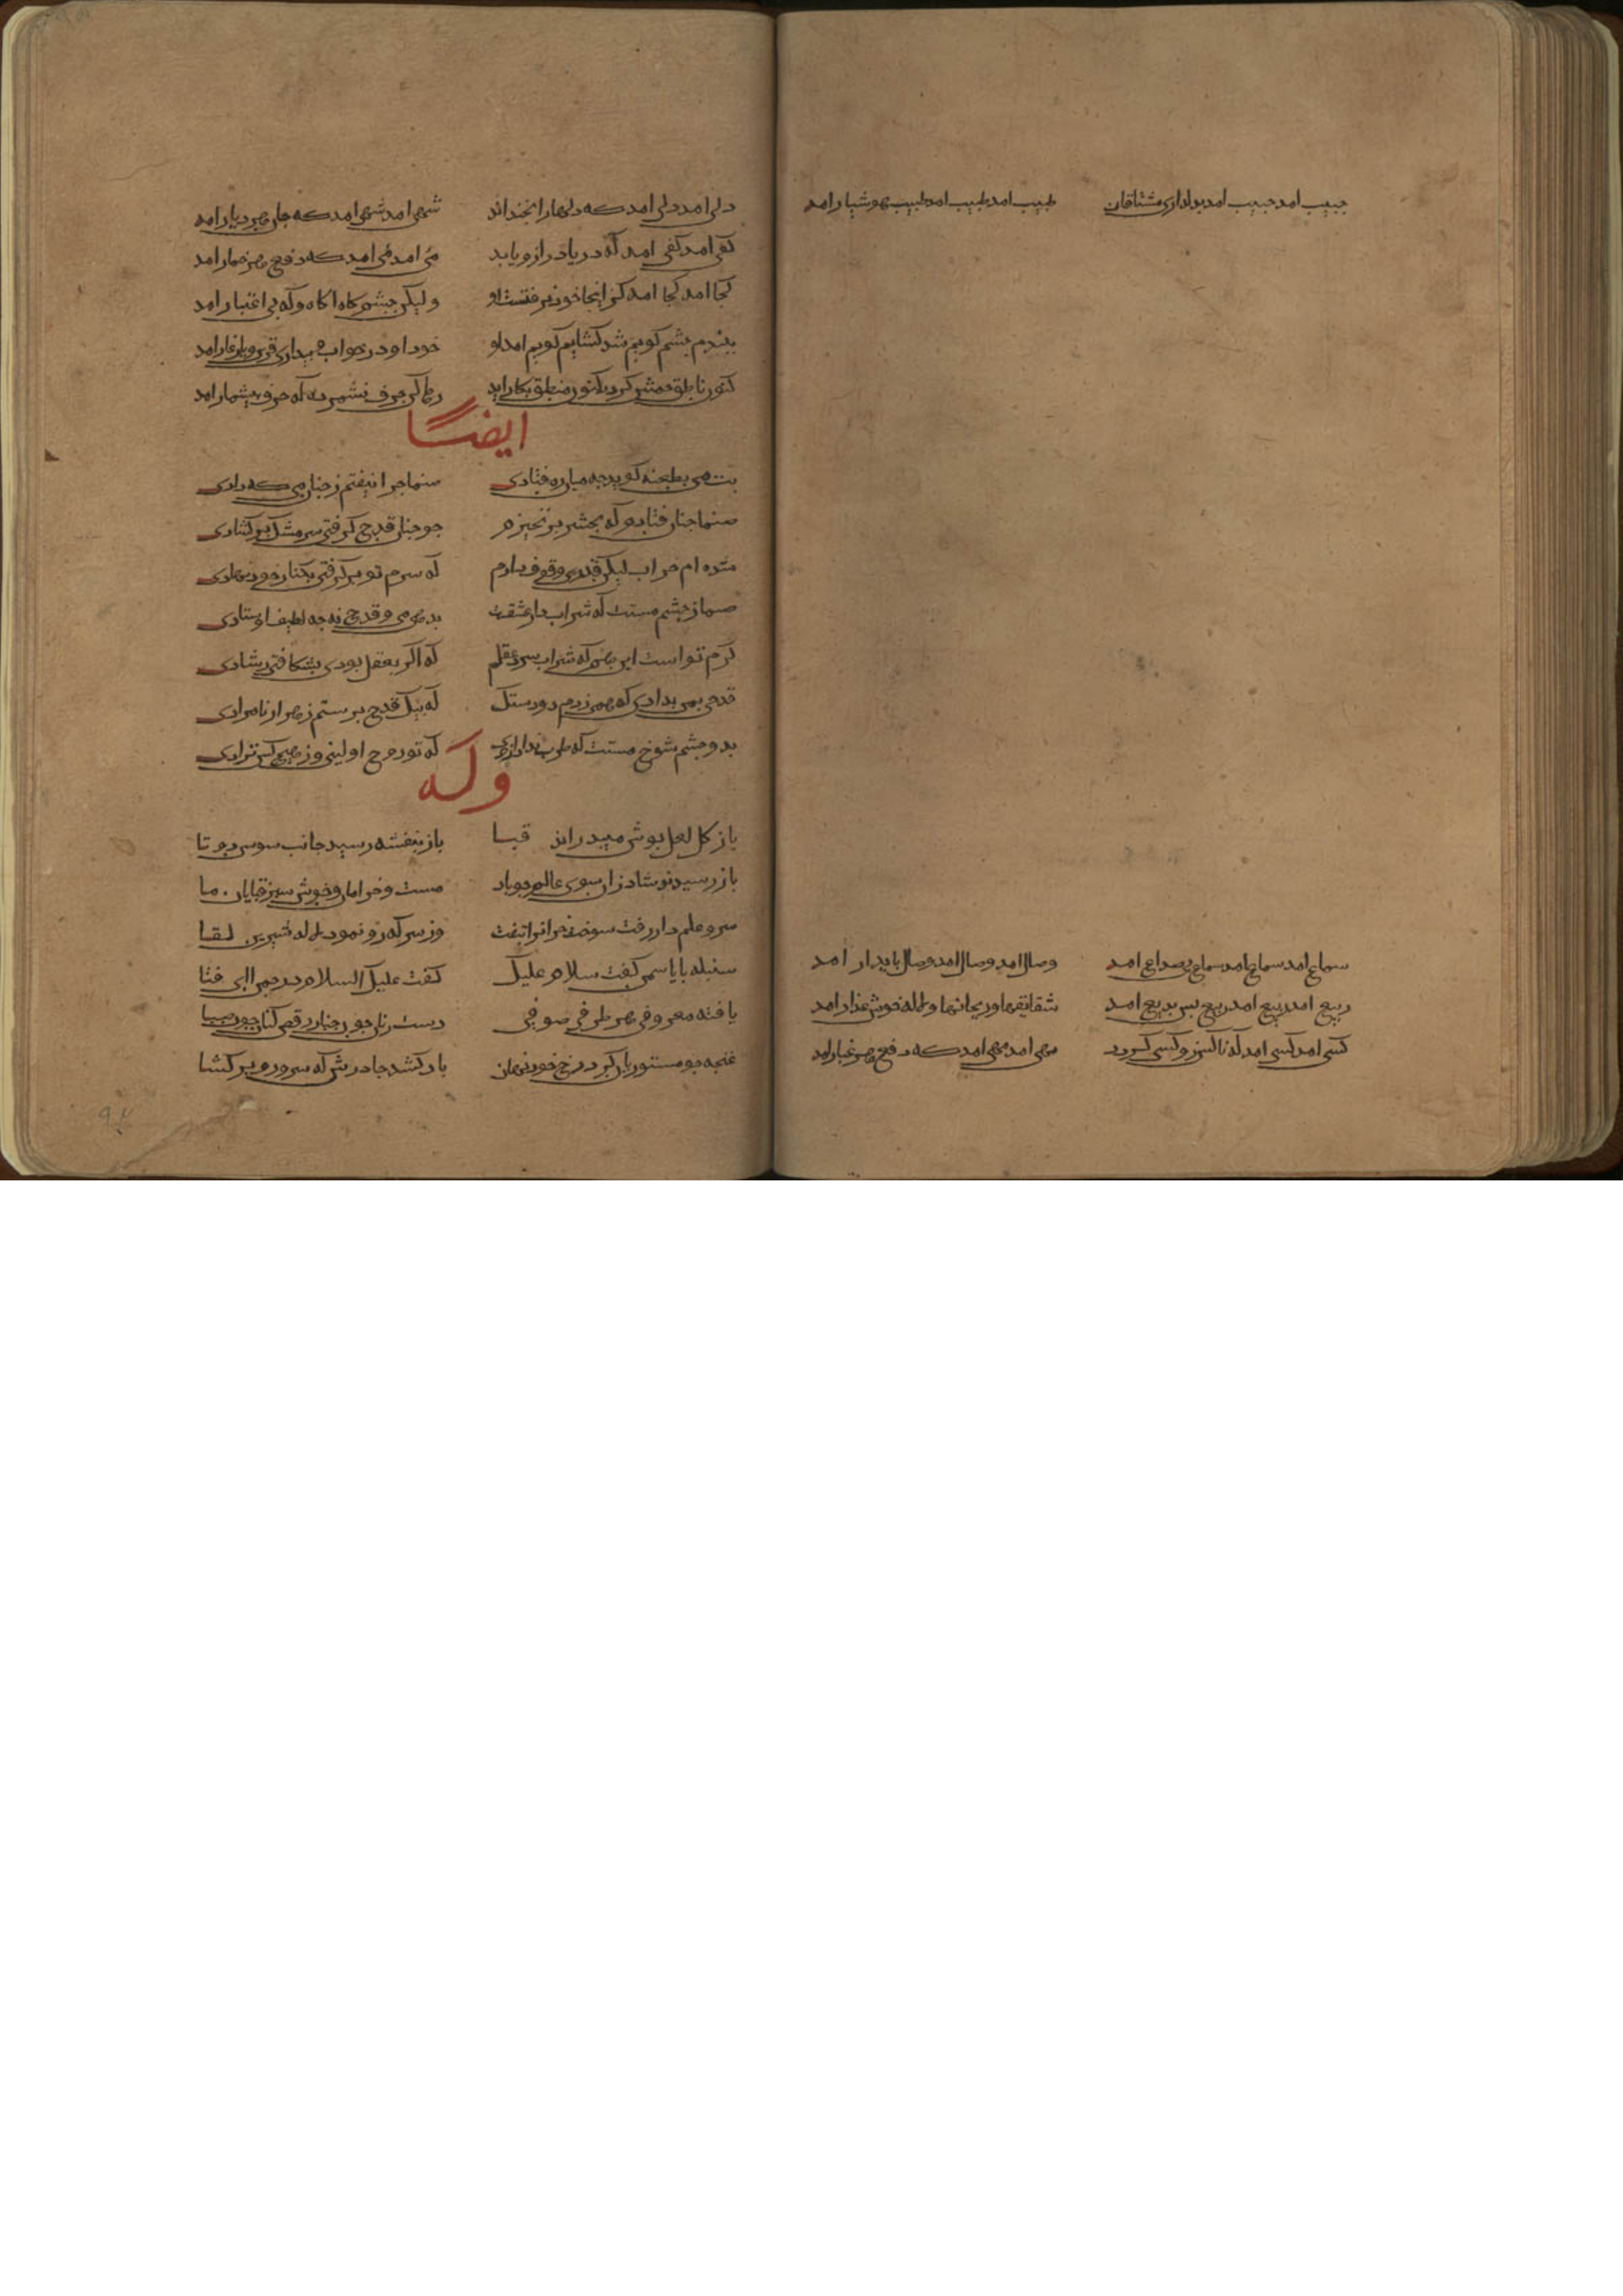 حبیب امد حبیب امد بدلداری مشتاقان طبیب امد طبیب امد طبیب هوشیار امد
سماع امد سماع امد سماع بی صداع امد وصال امد وصال امد وصال پایدار امد
ربیع امد ربیع امد ربیع بس بدیع امد شقایقها و ریحانها و لاله خوش عذار امد
کسی امد کسی امد که ناکس زو کسی کردد مهی امد مهی امد که دفع هر غبار امد
دلی امد دلی امد که دلها را بخنداند میی امد میی امد که دفع هر خمار امد
کفی امد کفی امد که دریا در ازو یابد شهی امد شهی امد که جان هر دیار امد
کجا امد کجا امد کز اینجا خود نرفتست او ولیکن چشم کاه اکاه و که بی اعتبار امد
ببندم چشم کویم شد کشایم کویم امد او خود او در خواب و بیداری قرین و یار غار امد
کنون ناطق خمش کردد کنون منطق بکار اید رها کن حرف بشمرده که حرف بی شمار امد
ایضا
بت من بطعنه کوید چه میان ره فتادی صنما چرا نیفتم ز چنان می که دادی
صنما چنان فتادم که بحشر بر نخیزم چو چنان قدح کرفتی سر مشک بر کشادی
شده ام خراب لیکن قدری وقوف دارم که سرم تو بر کرفتی بکنار خود نهادی
صنما ز چشم مستت که شراب دار عشقت بدهی می و قدح نه چه لطیف اوستادی
کرم تو است این هم که شراب برد عقلم که اکر بعقل بودی بشکافتی ز شادی
قدحی بمن بدادی که همی زنم دو دستک که بیک قدح برستم ز هزار نامرادی
بدو چشم شوخ مستت که طرب بزاد ازوی که تو روح اولینی و ز هیچ کس نزادی
وله
باز بنفشه رسید جانب سوسن دو تا باز کل لعل پوش میدراند قبا
باز رسیدند شاد زان سوی عالم چو باد مست و خرامان و خوش سبز قبایان ما
سرو علم دار رفت سوخت خزان را بتفت وز سر که رو نمود لاله شیرین لقا
سنبله با یاسمن کفت سلام علیک کفت علیک السلام در چمن ای فتا
یافته معروفی هر طرفی صوفی دست زنان چون چنار رقص کنان چون صبا
غنچه چو مستوریان کرده رخ خود نهان باد کشد چادرش که سره رو بر کشا